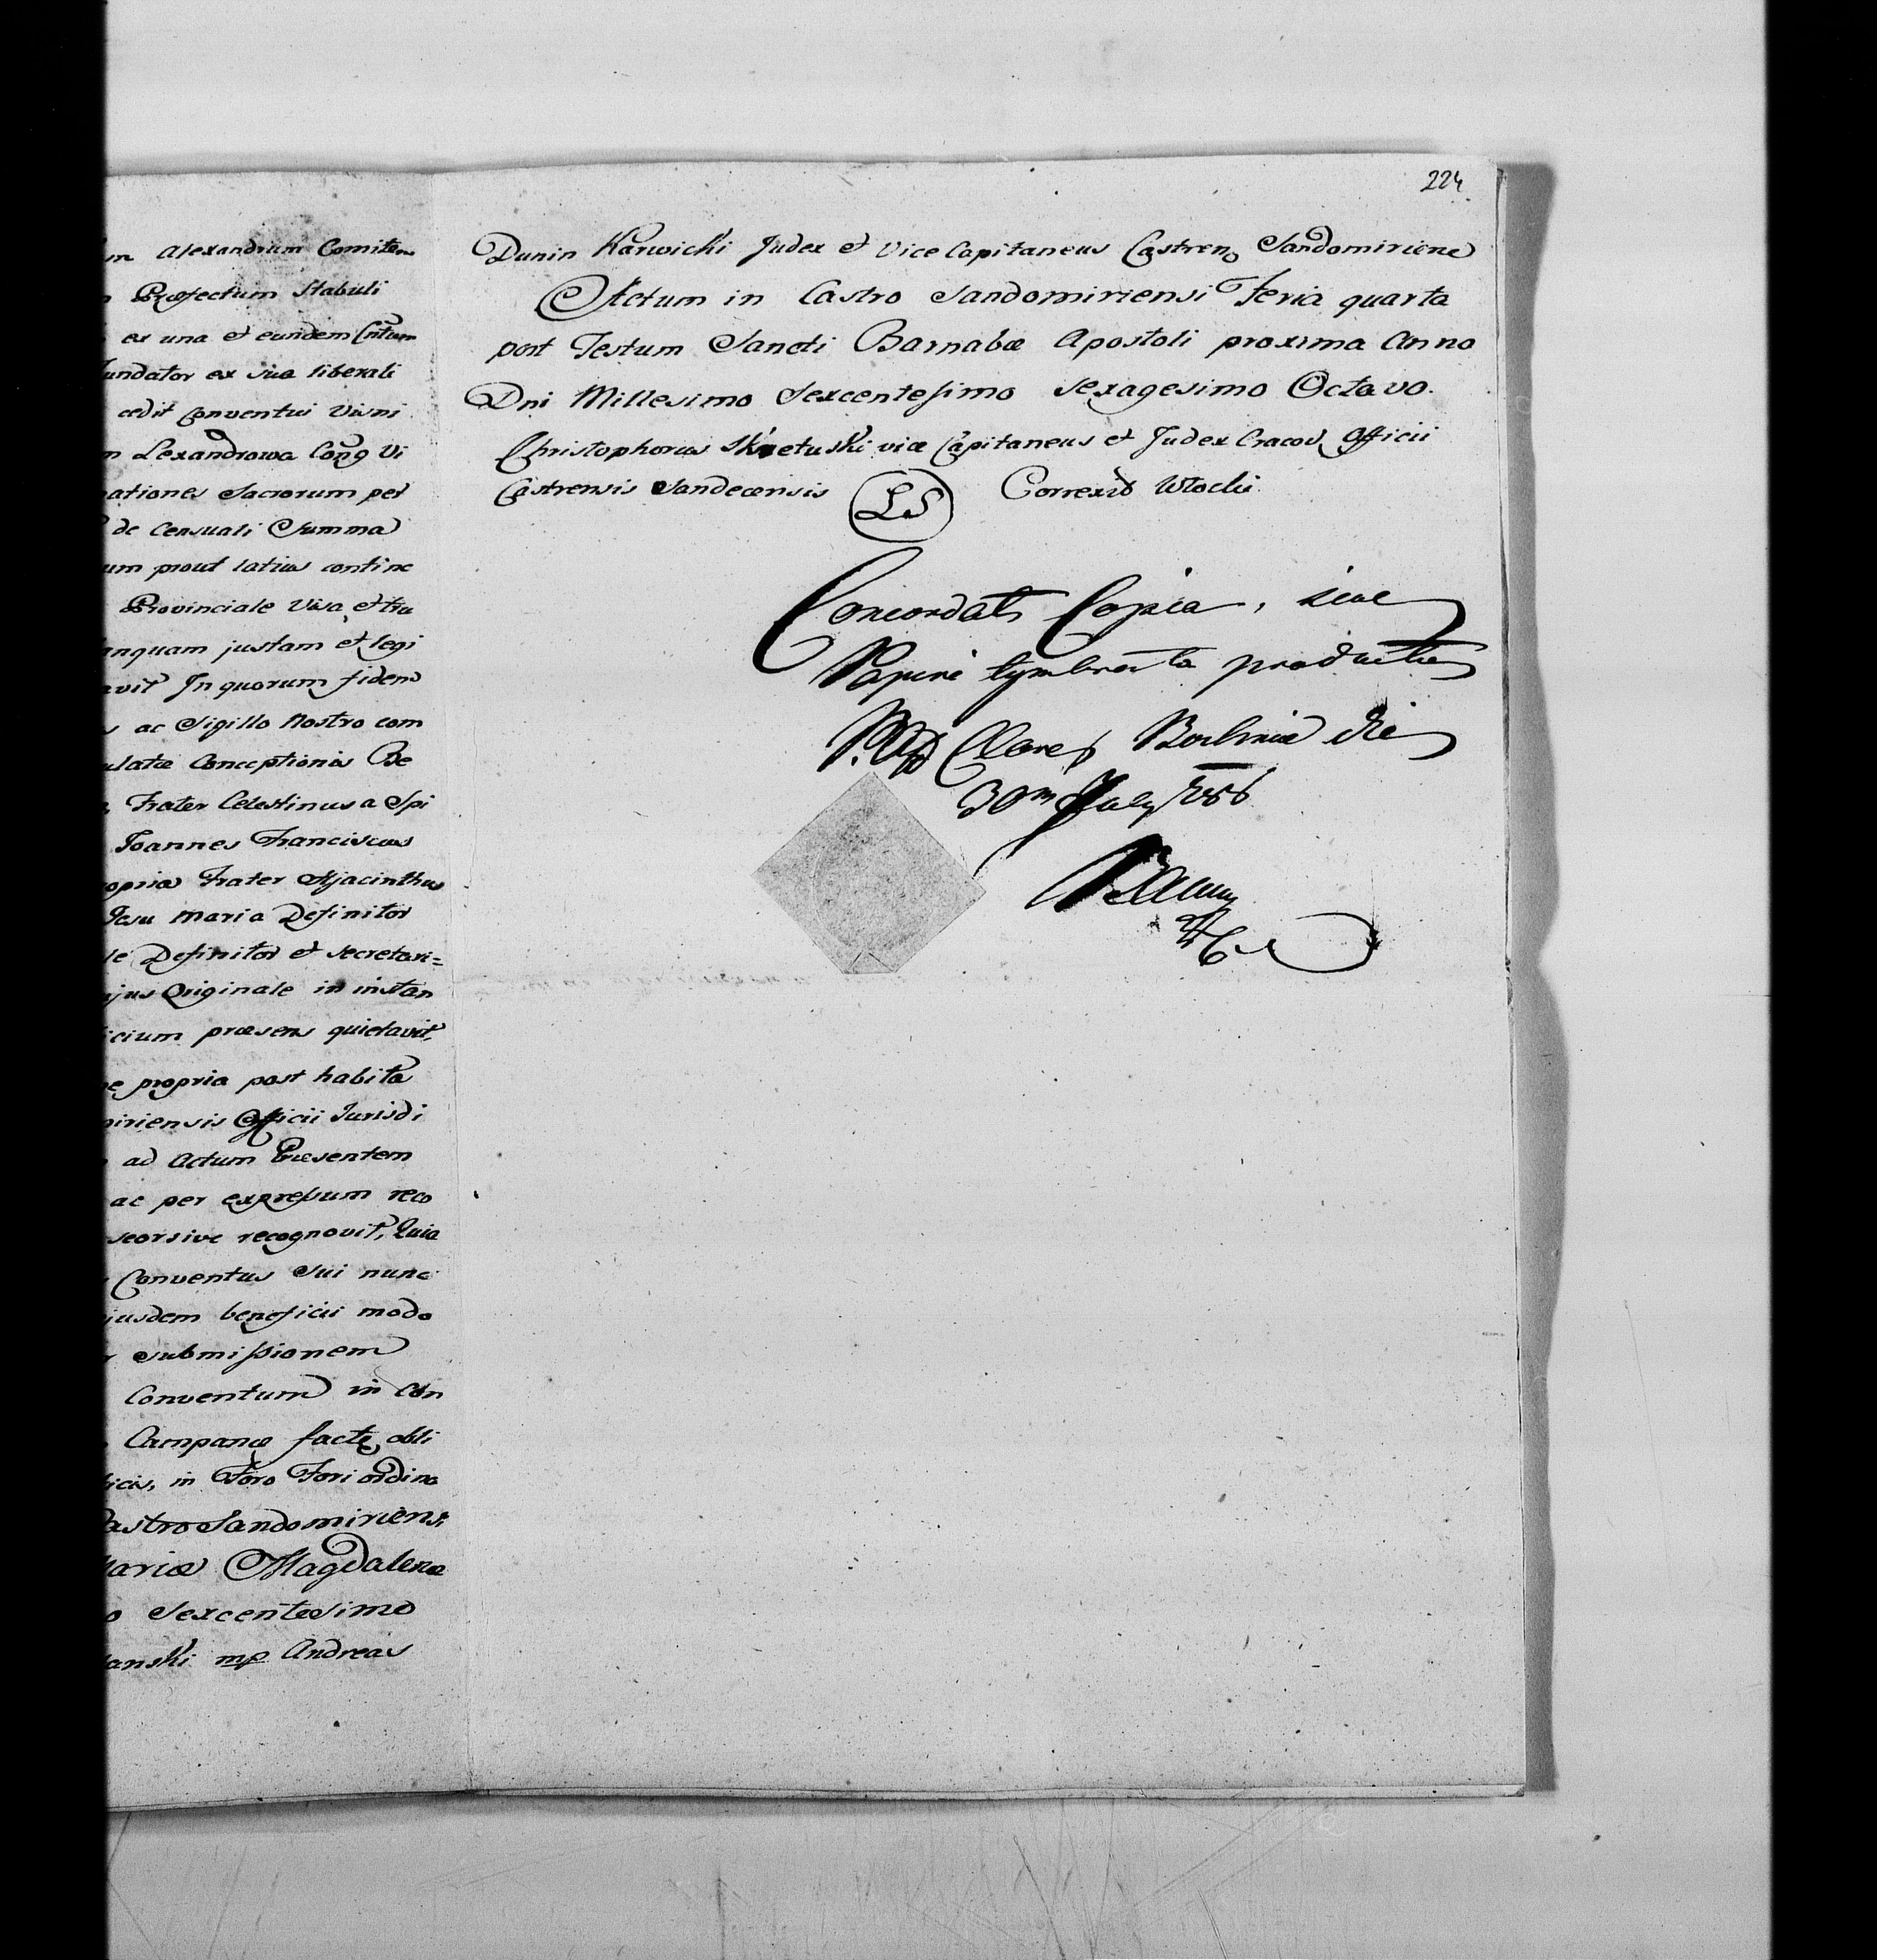 m Alexandrum Comitem
Præfectum Stabuli
ex una et eundem Cntum
undator ex sua liberali
cedit Conventui Visni
m Lexandrowa Cong Vi
ationes Sacrorum per
de Censuali Summa
um prout latius contine
Provinciale Visa et tra
anquam justam et legi
avit In quorum fidem
ac Sigillo Nostro com
ulatæ Conceptionis Be
Frater Celestinus a Spi
Joannes Franciscus
opria Frater Hyjacinthus
Jesu Maria Definitor
le Definitor et Secretari=
ujus Originale in instan
icium præsens quietavit,
e propria post habita
miriensis Officii Jurisdi
ad Actum Præsentem
ac per expressum reco
seorsive recognovit, Quia
Conventus Sui nunc
ejusdem beneficii modo
Submissionem
Conventum in Con
Campanæ factæ obli
icis, in Foro Fori ordina
Castro Sandomiriensi
Mariæ Magdalenæ
o Sexcentesimo
anski mp Andreas
224
Dunin Karwicki Judex et Vice Capitaneus Castren Sandomiriene
Actum in Castro Sandomiriensi Feria quarta
post Festum Sancti Barnabæ Apostoli proxima Anno
Dni Millesimo Sexcentesimo Sexagesimo Octavo.
Christophorus Skretuski vice Capitaneus et Judex Cracov Officii
Castrensis Sandecensis LS Correxit Wlocki
Concordat Copia, sine
Papiri tymbrata productæ
Clares Bochniæ die
30m July 786